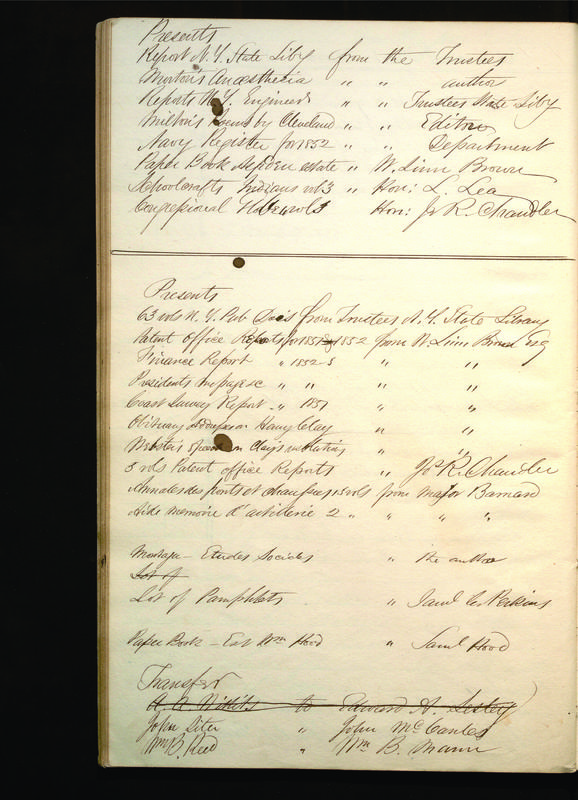 Presents
Report N.Y. State Liby from the Trustees
Morton's Anaesthesia " " author
Reports N.Y. Engineers " " Trustees State Liby
Milton's Poems by Cleveland " " Editor
Navy Register for 1852 " " Department
Paper Book Aspden estate " W. Linn Brown
Schoolcrafts Indians vol 3 " Hon: L. Lea
Congressional Globe vols Hon: Js R. Chandler
Presents
63 vols N.Y. Pub Docs from Trustees N.Y. State Library
Patent Office Reports for 1851 & 1852 from W. Linn Brown Esq
Finance Report " 1852-3 " "
Presidents Message " " " "
Coast Survey Report " 1851 " "
Obituary addresses on Henry Clay " "
Websters Speech on Clay's resolutions " "
3 vols Patent Office Reports " Js R. Chandler
Annales des ponts et chaussees 5 vols from Major Barnard
Aide memoire d'artillerie 2 " " " "
Etudes Sociales " the author
Lot of
Lot of Pamphlets " Saml C. Perkins
Paper Book - Est Wm Hood " Saml Hood
Transfer
to Edward A. Lesley
John Siter " John McCanles
Wm B. Reed " Wm B. Mann